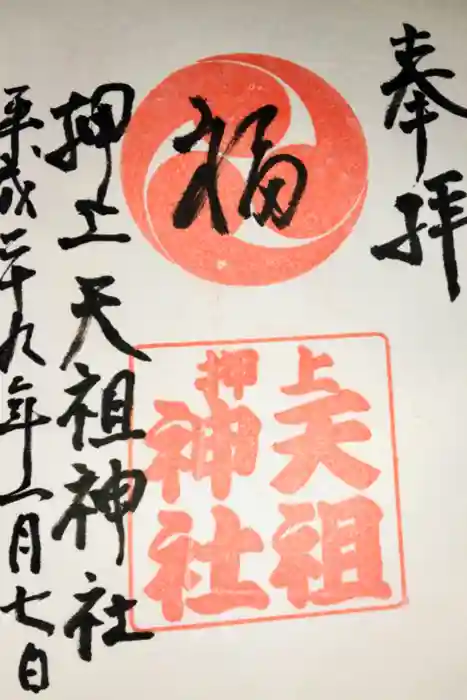 奉拝
福
上天祖
押神社
押上天祖神社
平成二十九年一月七日